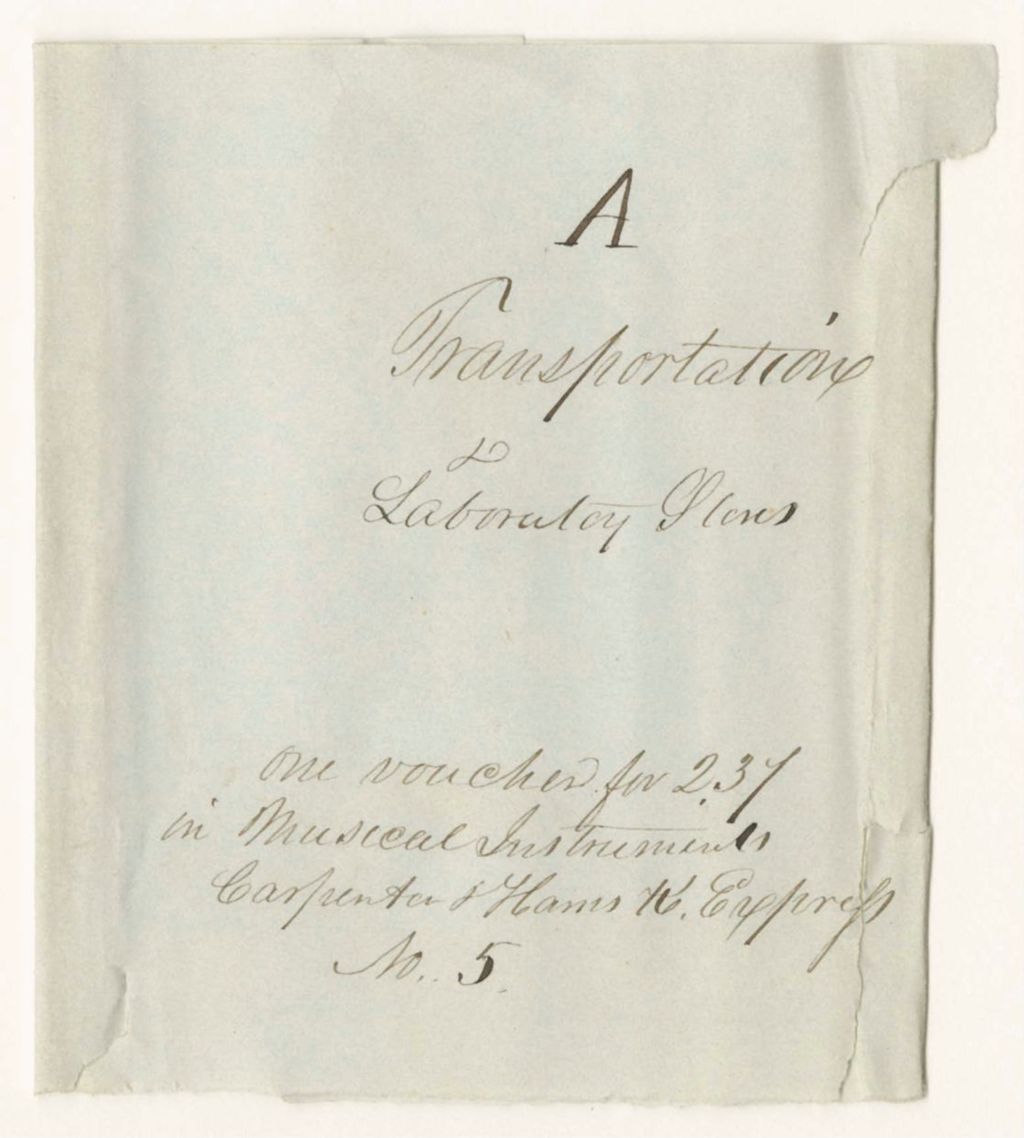 A
Transportation
&
Laboratory Stores
one voucher for 237
in Musical Instruments
Carpenter & Hams Express
No. 5